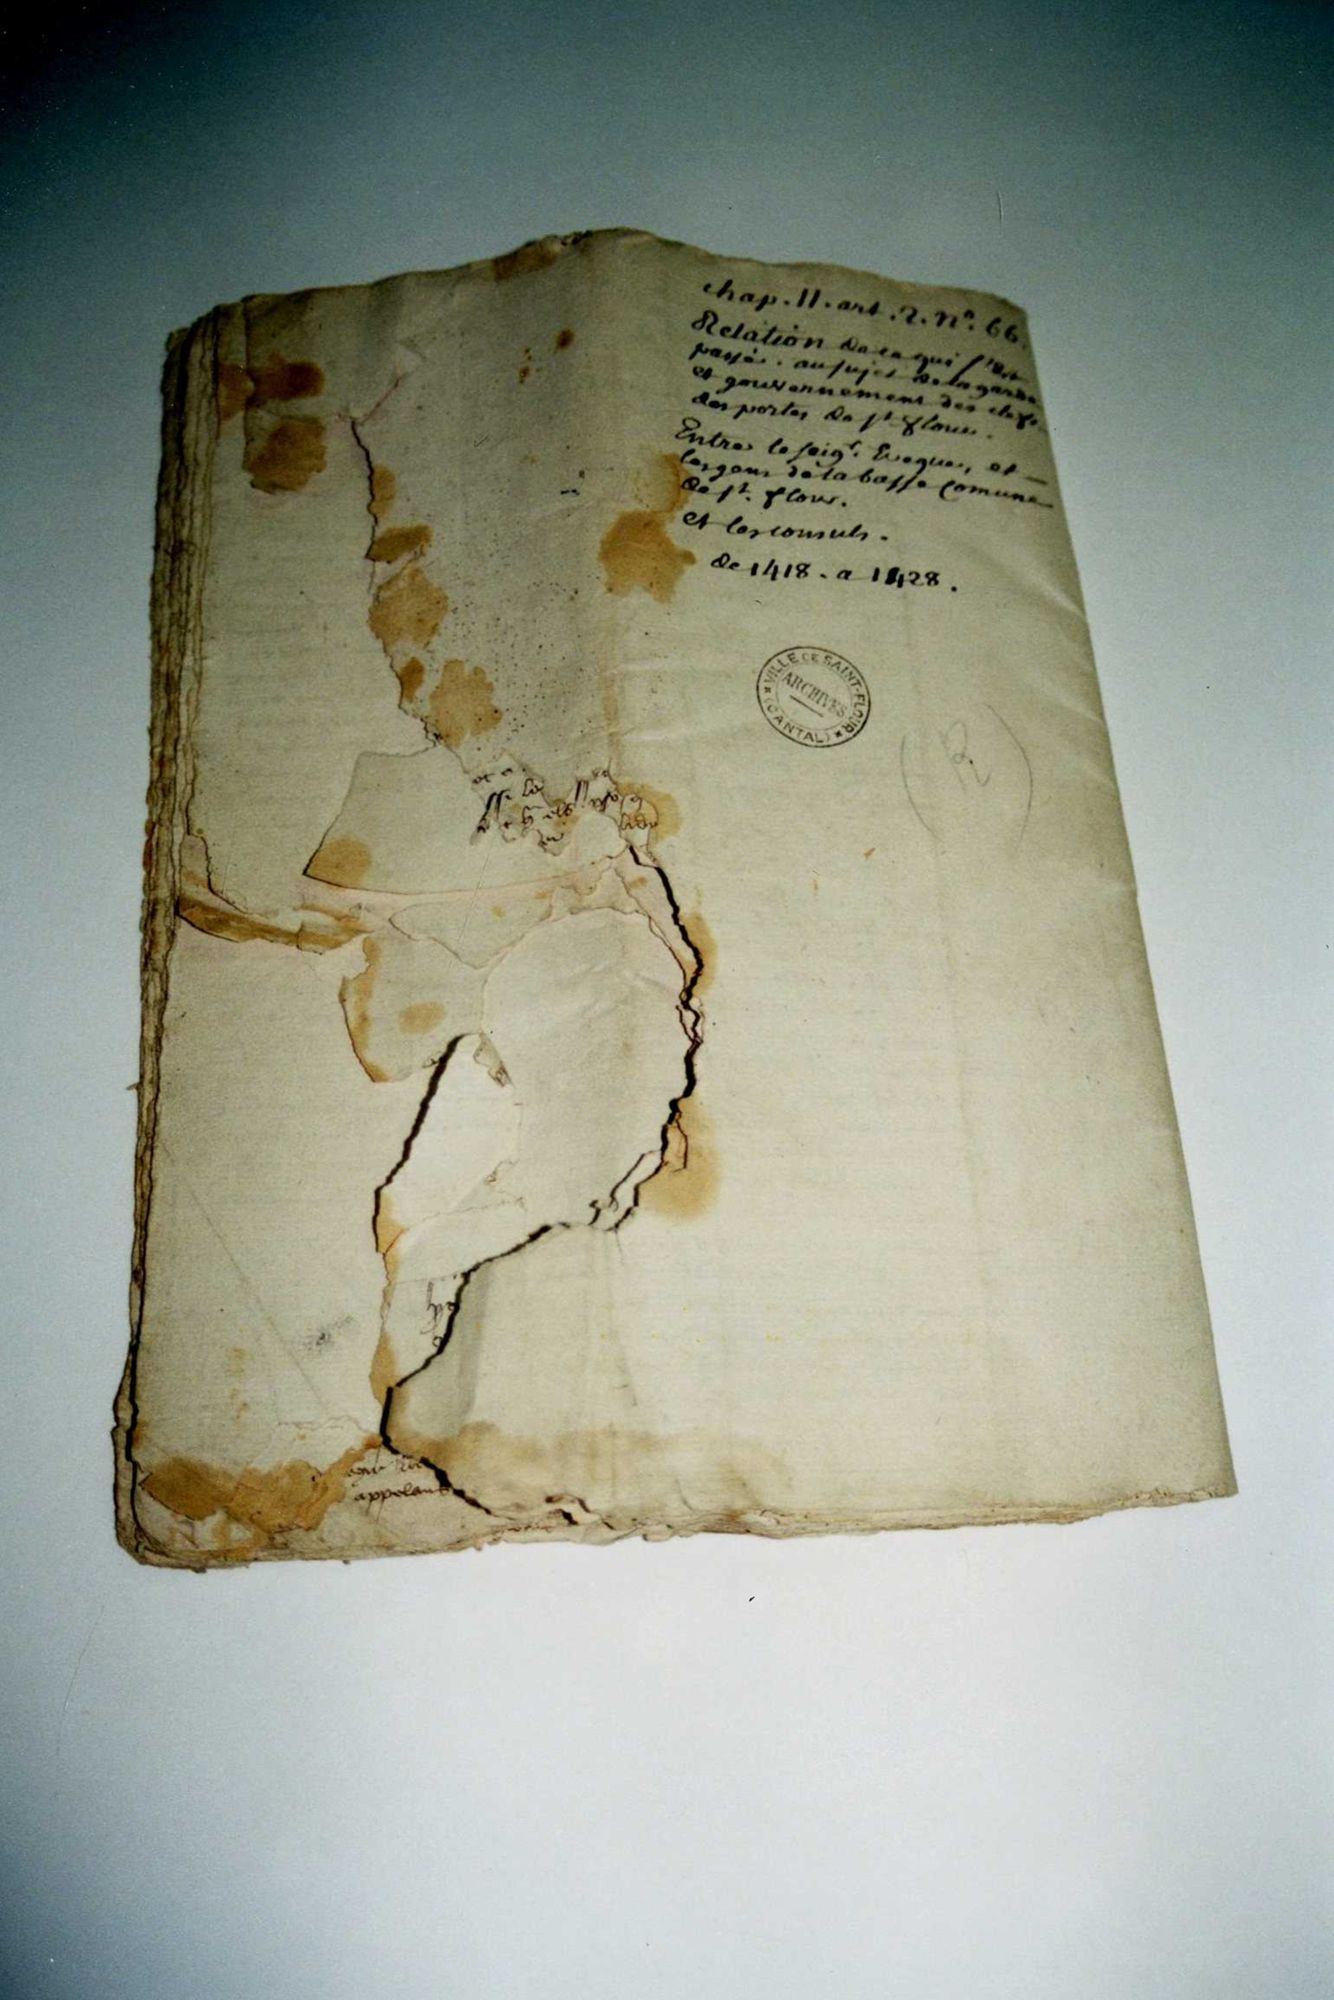 chap. 11. art. 2. N°. 66.
Relation de ce qui s'est
passé. au sujet de la garde
et gouvernement des clefs.
des portes de st. flour.
Entre le seigr. Eveque, et
les gens de la basse Comune
de st. flour.
et les consuls.
de 1418. a 1428.
VILLE DE SAINT-FLOUR
ARCHIVES
(CANTAL)
(R)
appelant